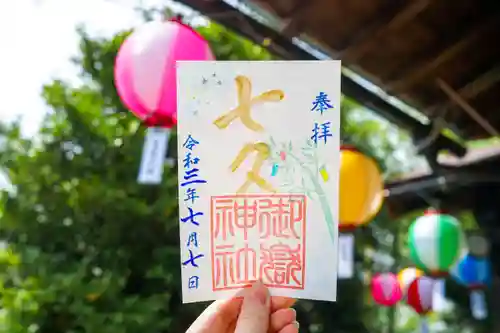 奉拝
七夕
御嶽
神社
令和三年七月七日